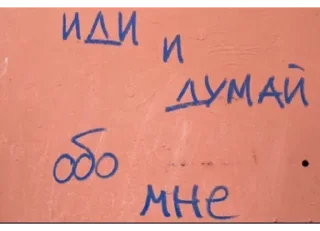 иди и
думай
обо
мне